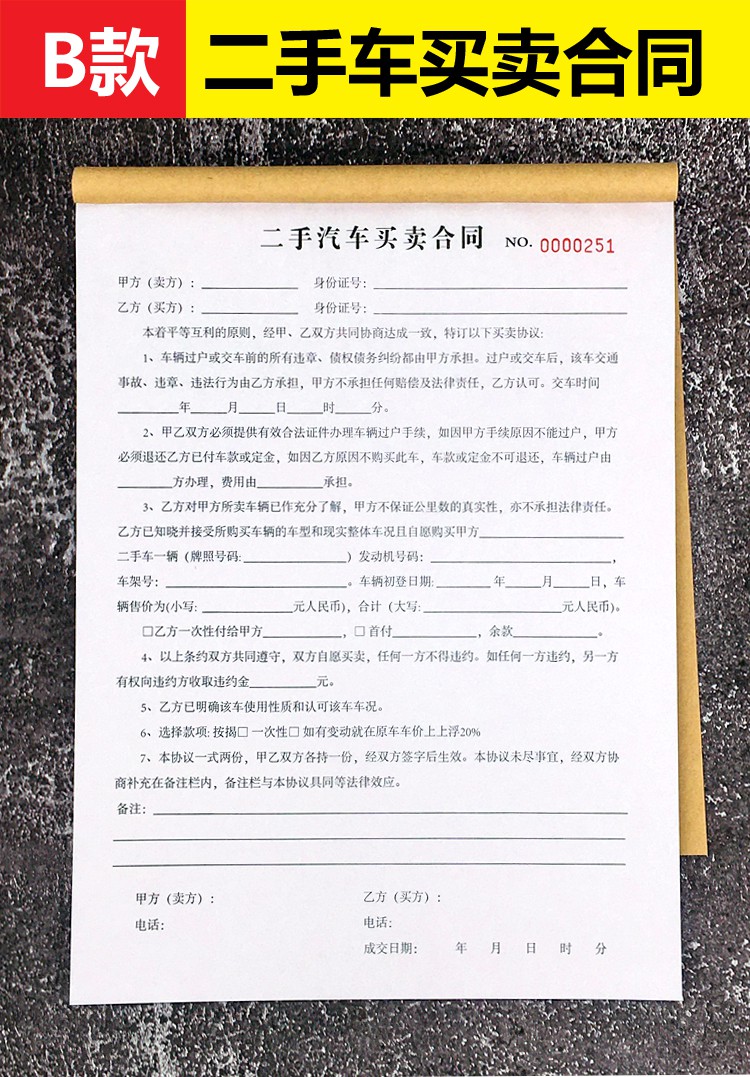 B款 二手车买卖合同
二手汽车买卖合同 NO. 0000251
甲方（卖方）：____________ 身份证号：______________________________
乙方（买方）：____________ 身份证号：______________________________
本着平等互利的原则，经甲、乙双方共同协商达成一致，特订以下买卖协议:
1、车辆过户或交车前的所有违章、债权债务纠纷都由甲方承担。过户或交车后，该车交通
事故、违章、违法行为由乙方承担，甲方不承担任何赔偿及法律责任，乙方认可。交车时间
__________年______月______日______时______分。
2、甲乙双方必须提供有效合法证件办理车辆过户手续，如因甲方手续原因不能过户，甲方
必须退还乙方已付车款或定金，如因乙方原因不购买此车，车款或定金不可退还，车辆过户由
_________方办理，费用由___________承担。
3、乙方对甲方所卖车辆已作充分了解，甲方不保证公里数的真实性，亦不承担法律责任。
乙方已知晓并接受所购买车辆的车型和现实整体车况且自愿购买甲方_______________________
二手车一辆（牌照号码:________________）发动机号码：____________________________，
车架号：____________________________。车辆初登日期:_________年______月______日，车
辆售价为(小写:______________元人民币)，合计（大写:______________________元人民币)。
□乙方一次性付给甲方_____________，□首付______________，余款______________。
4、以上条约双方共同遵守，双方自愿买卖，任何一方不得违约。如任何一方违约，另一方
有权向违约方收取违约金___________元。
5、乙方已明确该车使用性质和认可该车车况。
6、选择款项: 按揭□ 一次性□ 如有变动就在原车车价上上浮20%
7、本协议一式两份，甲乙双方各持一份，经双方签字后生效。本协议未尽事宜，经双方协
商补充在备注栏内，备注栏与本协议具同等法律效应。
备注：
甲方（卖方）： 乙方（买方）：
电话： 电话：
成交日期： 年 月 日 时 分